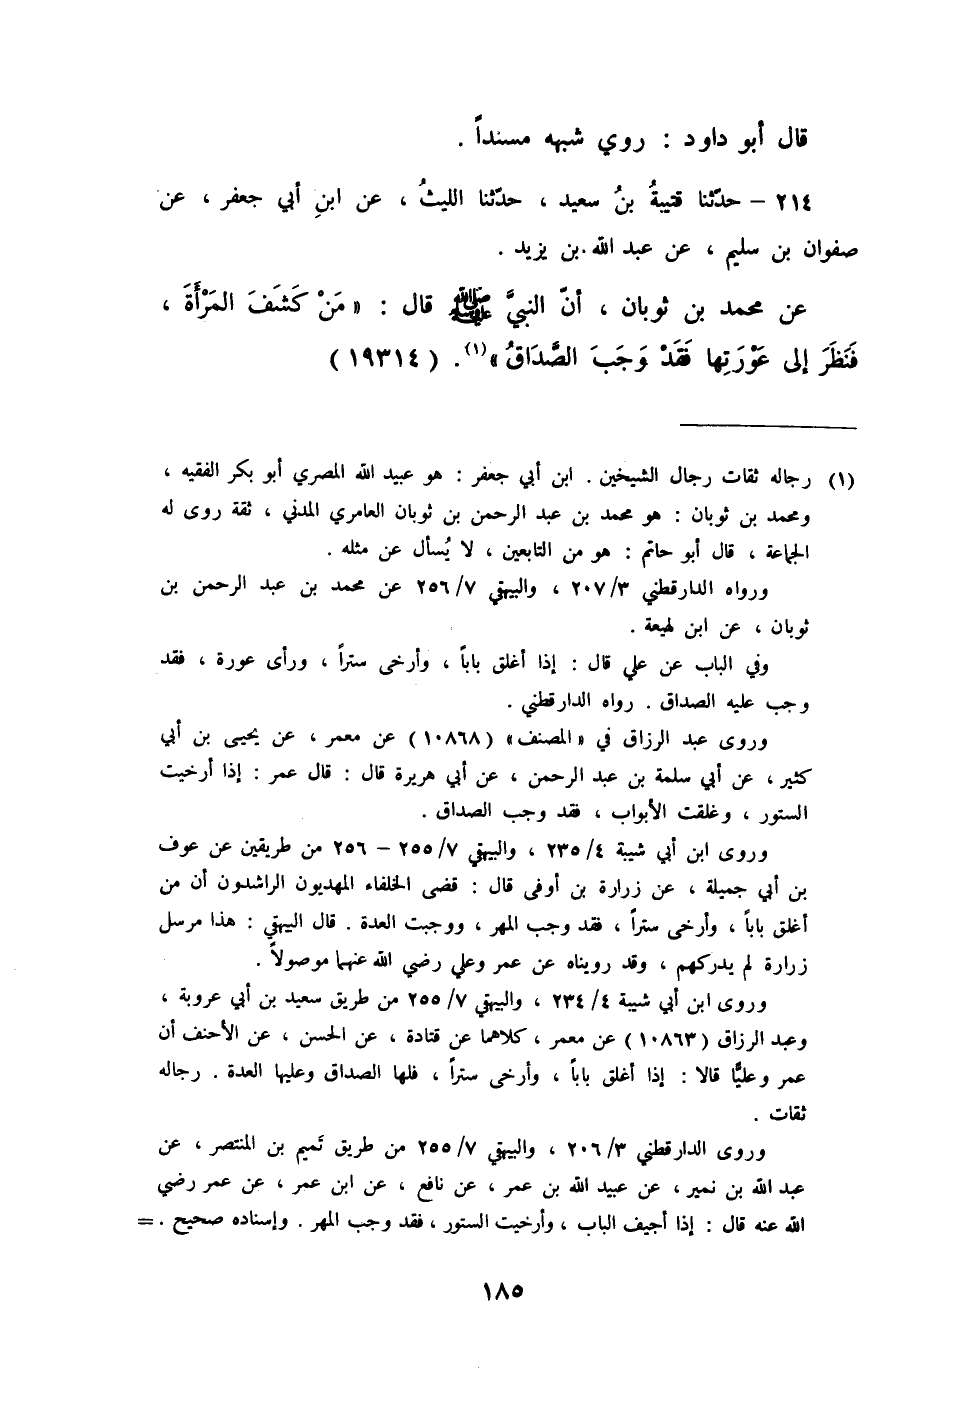 قال أبو داود : روي شبهه مسنداً .
٢١٤ – حدّثنا قتيبةُ بنُ سعيد ، حدّثنا الليثُ ، عن ابنِ أبي جعفر ، عن
صفوان بن سليم ، عن عبد الله بن يزيد .
عن محمد بن ثوبان ، أنّ النبيَّ ﷺ قال : « مَنْ كَشَفَ المَرْأَةَ ،
فَنَظَرَ إلى عَوْرَتِها فَقَدْ وَجَبَ الصَّدَاقُ »(١) . ( ١٩٣١٤ )
(١) رجاله ثقات رجال الشيخين . ابن أبي جعفر : هو عبيد الله المصري أبو بكر الفقيه ،
ومحمد بن ثوبان : هو محمد بن عبد الرحمن بن ثوبان العامري المدني ، ثقة روى له
الجماعة ، قال أبو حاتم : هو من التابعين ، لا يُسأل عن مثله .
ورواه الدارقطني ٢٠٧/٣ ، والبيهقي ٢٥٦/٧ عن محمد بن عبد الرحمن بن
ثوبان ، عن ابن لهيعة .
وفي الباب عن علي قال : إذا أغلق باباً ، وأرخى ستراً ، ورأى عورة ، فقد
وجب عليه الصداق . رواه الدارقطني .
وروى عبد الرزاق في « المصنف » (١٠٨٦٨) عن معمر ، عن يحيى بن أبي
كثير ، عن أبي سلمة بن عبد الرحمن ، عن أبي هريرة قال : قال عمر : إذا أرخيت
الستور ، وغلقت الأبواب ، فقد وجب الصداق .
وروى ابن أبي شيبة ٢٣٥/٤ ، والبيهقي ٢٥٥/٧ – ٢٥٦ من طريقين عن عوف
بن أبي جميلة ، عن زرارة بن أوفى قال : قضى الخلفاء المهديون الراشدون أن من
أغلق باباً ، وأرخى ستراً ، فقد وجب المهر ، ووجبت العدة . قال البيهقي : هذا مرسل
زرارة لم يدركهم ، وقد رويناه عن عمر وعلي رضي الله عنهما موصولاً .
وروى ابن أبي شيبة ٢٣٤/٤ ، والبيهقي ٢٥٥/٧ من طريق سعيد بن أبي عروبة ،
وعبد الرزاق (١٠٨٦٣) عن معمر ، كلاهما عن قتادة ، عن الحسن ، عن الأحنف أن
عمر وعليًّا قالا : إذا أغلق باباً ، وأرخى ستراً ، فلها الصداق وعليها العدة . رجاله
ثقات .
وروى الدارقطني ٢٠٦/٣ ، والبيهقي ٢٥٥/٧ من طريق تَميم بن المنتصر ، عن
عبد الله بن نمير ، عن عبيد الله بن عمر ، عن نافع ، عن ابن عمر ، عن عمر رضي
الله عنه قال : إذا أجيف الباب ، وأرخيت الستور ، فقد وجب المهر . وإسناده صحيح . =
١٨٥